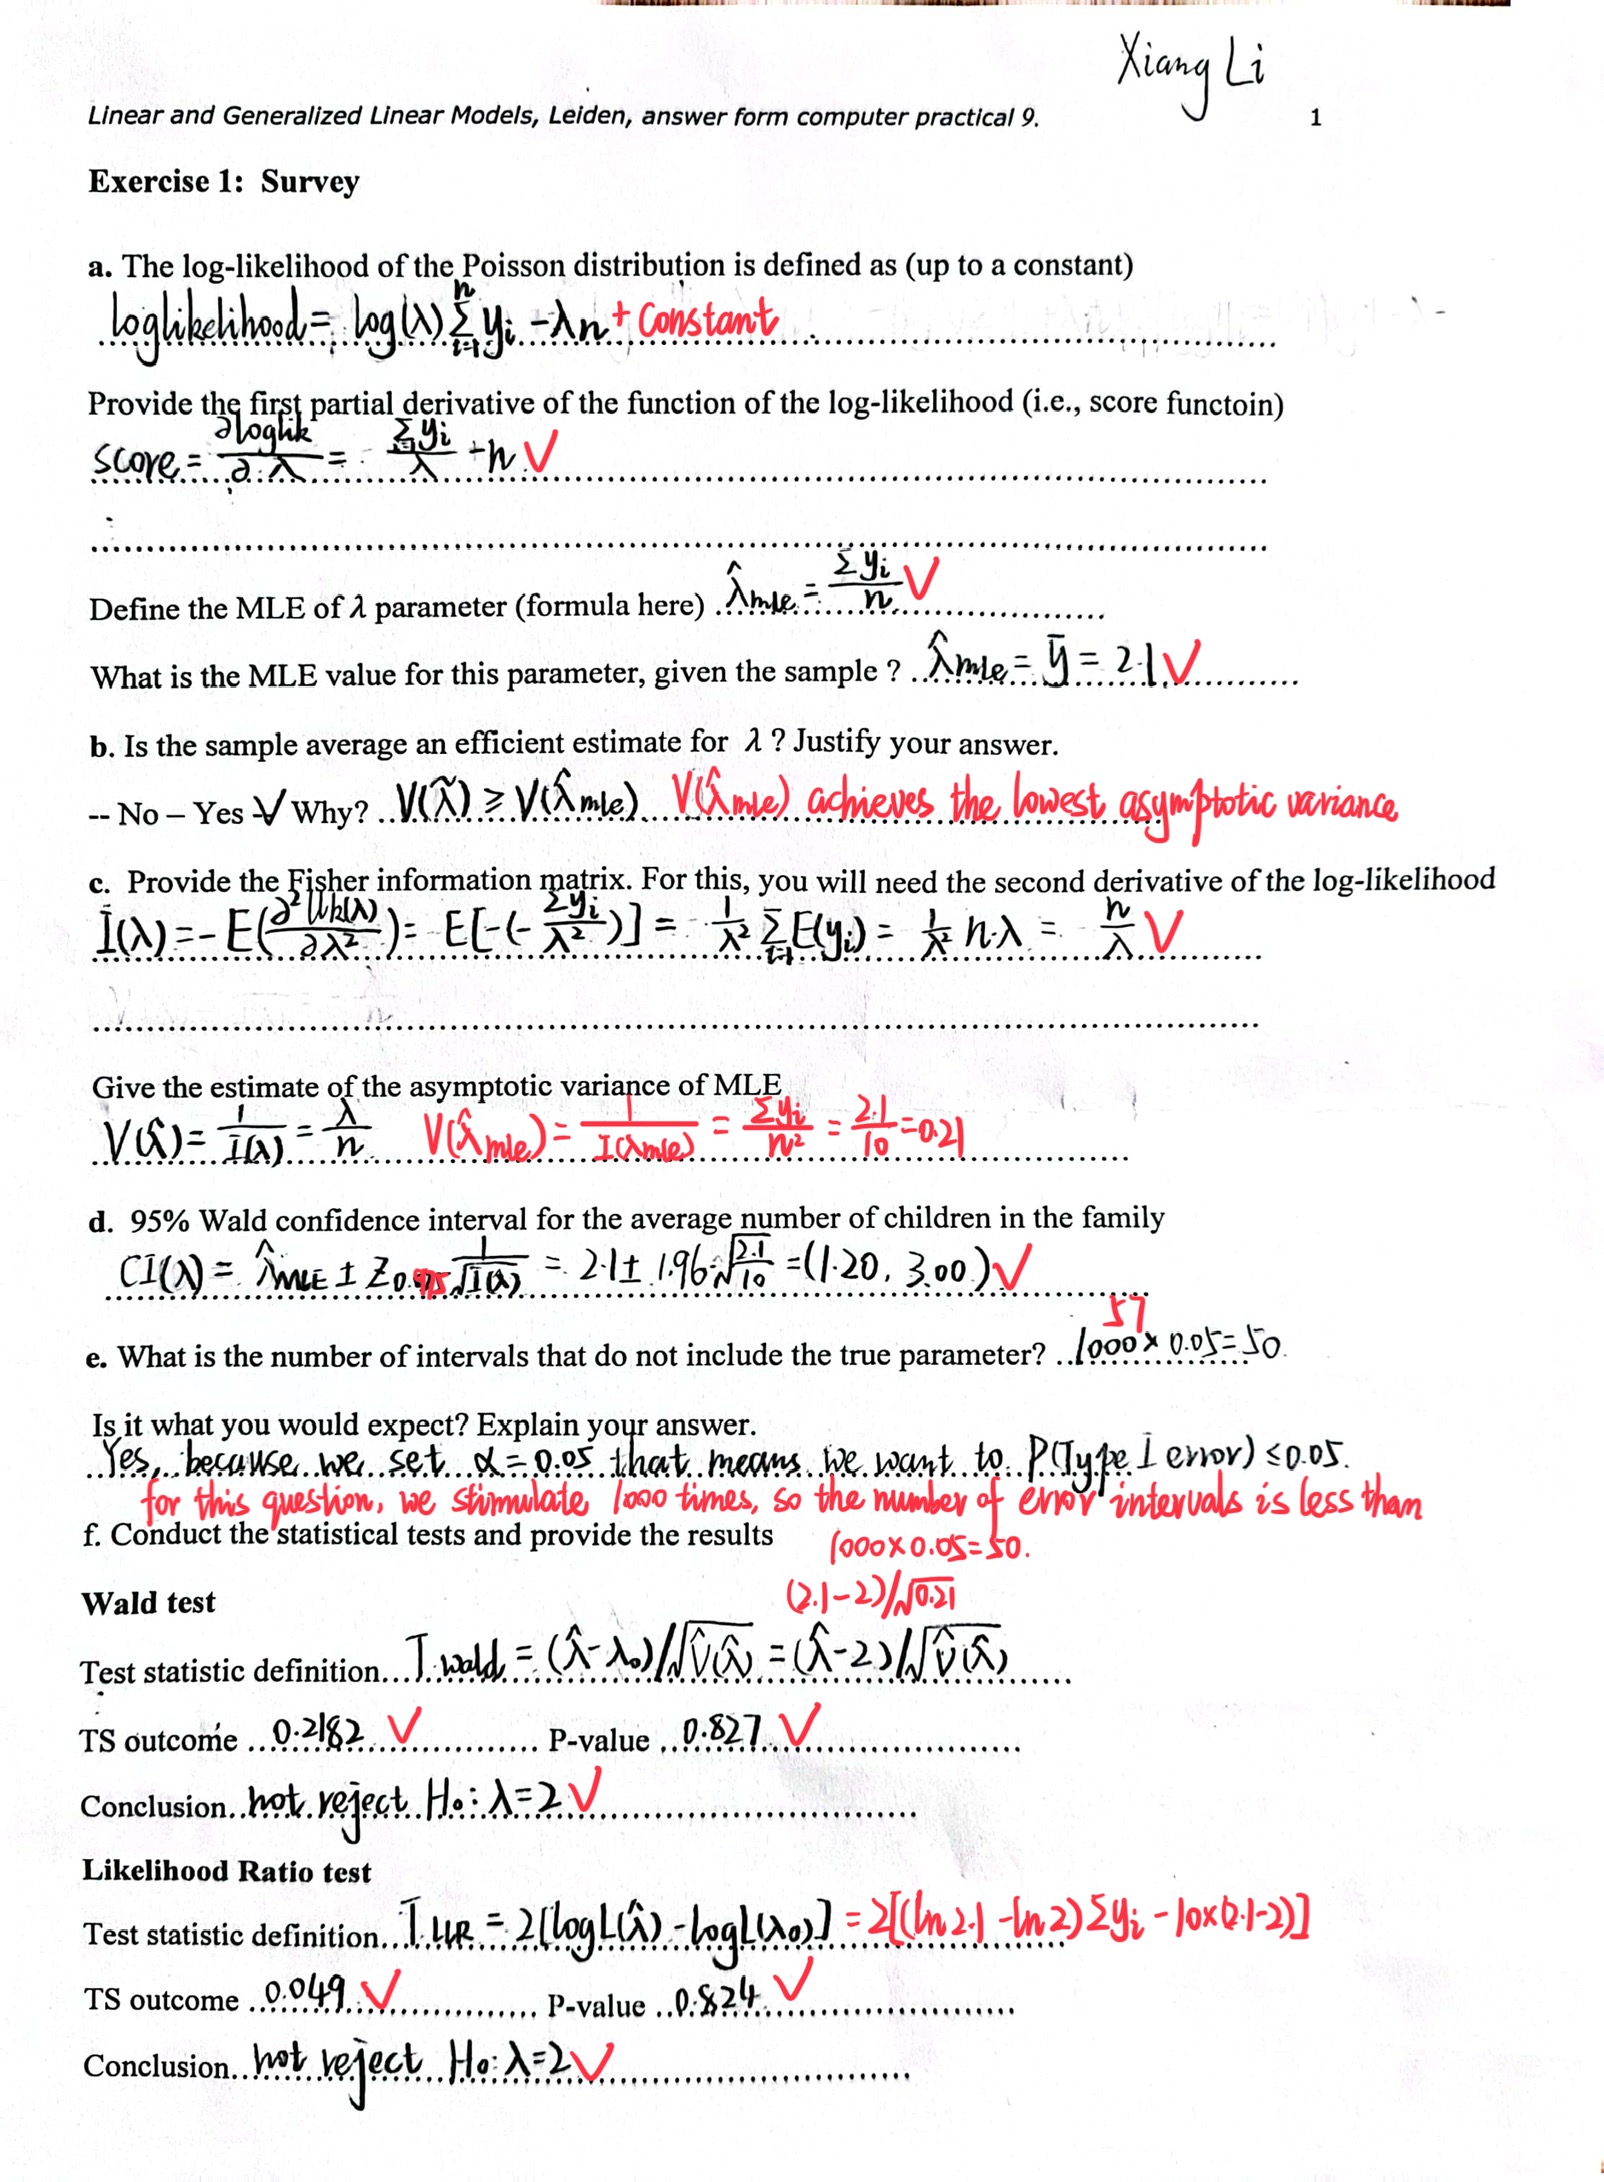 Xiang Li
Linear and Generalized Linear Models, Leiden, answer form computer practical 9. 1
Exercise 1: Survey
a. The log-likelihood of the Poisson distribution is defined as (up to a constant)
loglikelihood = log(λ) Σ_{i=1}^{n} yi - λn + Constant
Provide the first partial derivative of the function of the log-likelihood (i.e., score functoin)
score = ∂loglik / ∂λ = Σyi / λ - n √
Define the MLE of λ parameter (formula here) λ̂mle = Σyi / n √
What is the MLE value for this parameter, given the sample ? λ̂mle = ȳ = 2.1 √
b. Is the sample average an efficient estimate for λ ? Justify your answer.
-- No – Yes -√ Why? V(λ̃) ≥ V(λ̂mle) V(λ̂mle) achieves the lowest asymptotic variance
c. Provide the Fisher information matrix. For this, you will need the second derivative of the log-likelihood
I(λ) = -E(∂²lik(λ) / ∂λ²) = E[-(-Σyi / λ²)] = 1/λ² Σ_{i=1} E(yi) = 1/λ² n·λ = n/λ √
Give the estimate of the asymptotic variance of MLE
V(λ̂) = 1/I(λ) = λ/n V(λ̂mle) = 1/I(λmle) = Σyi/n² = 2.1/10 = 0.21
d. 95% Wald confidence interval for the average number of children in the family
CI(λ) = λ̂MLE ± Z0.975 1/√I(λ) = 2.1 ± 1.96·√2.1/10 = (1.20, 3.00) √
57
e. What is the number of intervals that do not include the true parameter? 1000 × 0.05 = 50
Is it what you would expect? Explain your answer.
Yes, because we set α = 0.05 that means we want to P(Type I error) ≤ 0.05.
for this question, we stimulate 1000 times, so the number of error intervals is less than
1000×0.05=50.
f. Conduct the statistical tests and provide the results
Wald test
(2.1-2)/√0.21
Test statistic definition T.wald = (λ̂-λ0)/√V̂(λ̂) = (λ̂-2)/√V̂(λ̂)
TS outcome 0.2182 √ P-value 0.827 √
Conclusion not reject H0: λ=2 √
Likelihood Ratio test
Test statistic definition T.LLR = 2[logL(λ̂) - logL(λ0)] = 2[(ln2.1 - ln2)Σyi - 10×(2.1-2)]
TS outcome 0.049 √ P-value 0.824 √
Conclusion not reject H0: λ=2 √